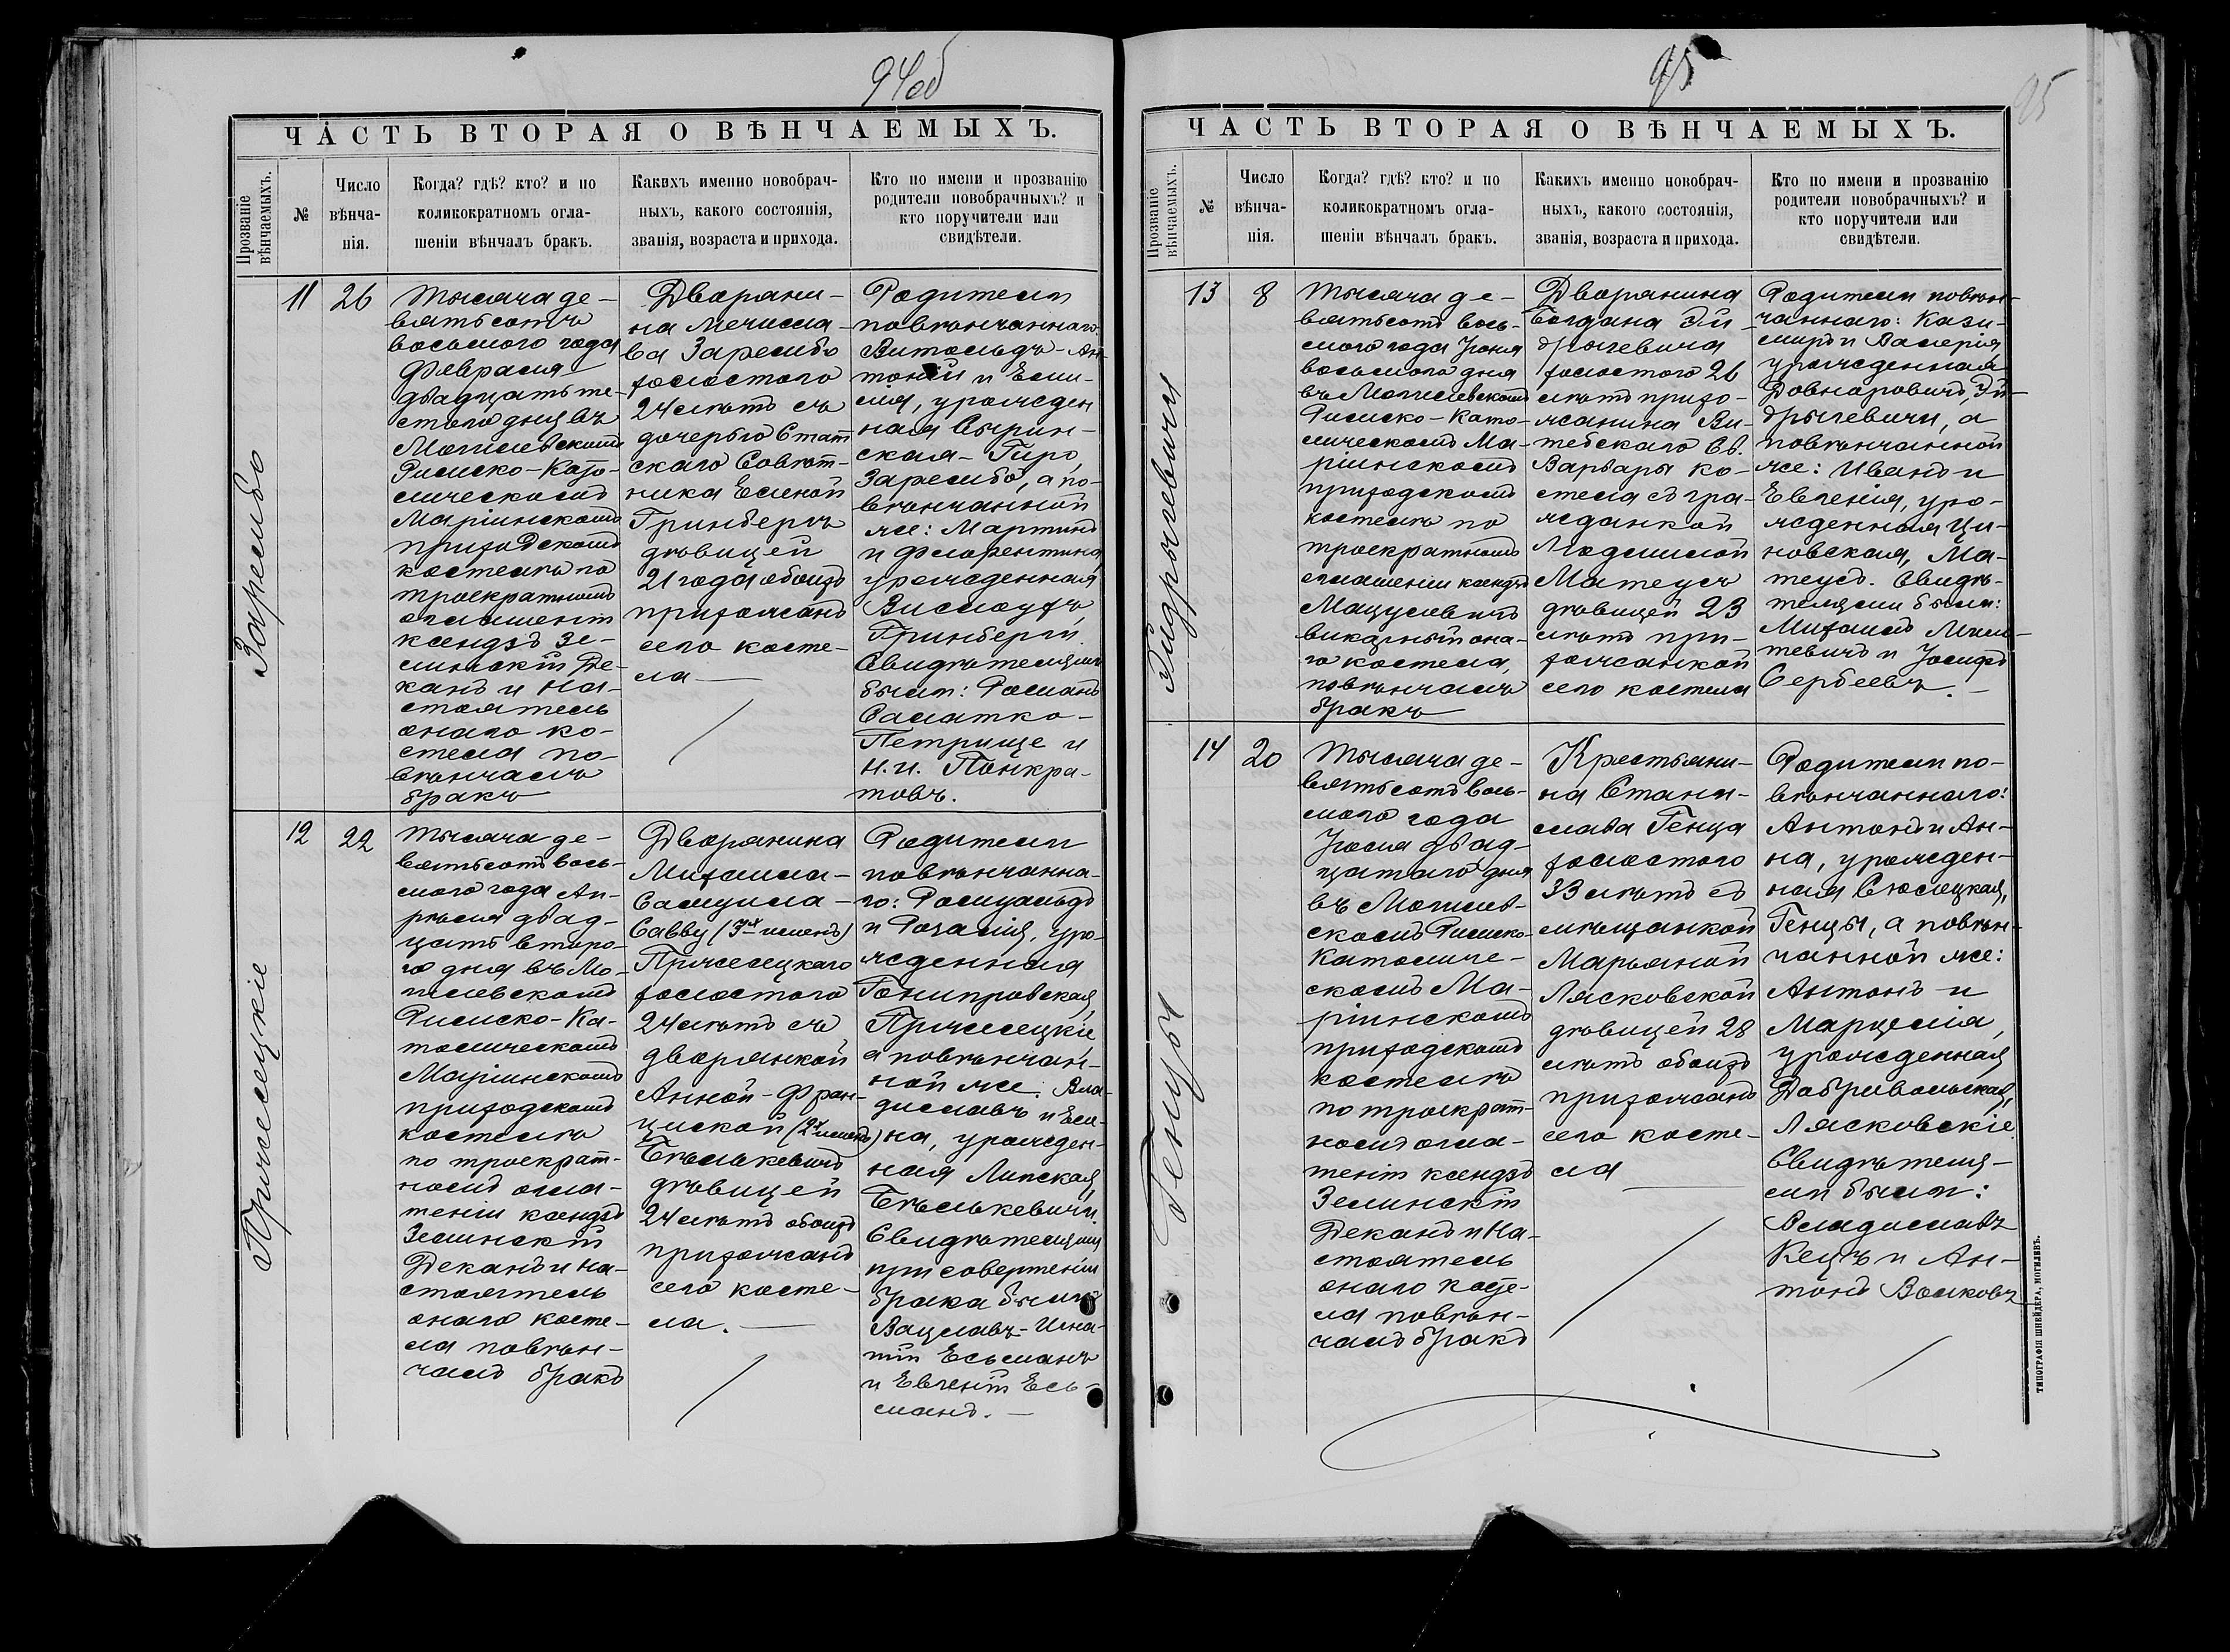 94об
ЧАСТЬ ВТОРАЯ О ВѢНЧАЕМЫХЪ.
Прозваніе вѣнчаемыхъ.
№
Число
вѣнча-
нія.
Когда? гдѣ? кто? и по
коликократномъ огла-
шеніи вѣнчалъ бракъ.
Какихъ именно новобрач-
ныхъ, какого состоянія,
званія, возраста и прихода.
Кто по имени и прозванію
родители новобрачныхъ? и
кто поручители или
свидѣтели.
Зарембо
11
26
Тысяча де-
вятьсотъ
восьмого года
Февраля
двадцать ше-
стого дня въ
Могилевскомъ
Римско-Като-
лическомъ
Маріинскомъ
приходскомъ
костелѣ по
троекратномъ
оглашеніи
ксендзъ Зе-
линскій Де-
канъ и На-
стоятель
онаго ко-
стела по-
вѣнчалъ
бракъ
Дворяни-
на Мечисла-
ва Зарембо
холостого
24 лѣтъ съ
дочерью Стат
скаго Совѣт-
ника Еленой
Гринбергъ
дѣвицей
21 года обоихъ
прихожанъ
сего косте-
ла
Родители
повѣнчаннаго
Витольдъ-Ан-
тоній и Еми-
лія, урожден
ная Сырин-
ская-Гиро,
Зарембо, а по-
вѣнчанной
же: Мартинъ
и Флорентина,
урожденная
Висмонтъ,
Гринберги.
Свидѣтелями
были: Романъ
Саматко-
Петрище и
Н. И. Понкра-
товъ.
Пржеселецкіе
12
22
Тысяча де-
вятьсотъ вось-
мого года Ап-
рѣля двад-
цать второ-
го дня въ Мо-
гилевскомъ
Римско-Ка-
толическомъ
Маріинскомъ
приходскомъ
костелѣ
по троекрат-
номъ огла-
шеніи ксендзъ
Зелинскій
Деканъ и На-
стоятель
онаго косте-
ла повѣн-
чалъ бракъ
Дворянина
Михаила-
Самуила-
Савву (3хъ именъ)
Пржеселецкаго
холостого
24 лѣтъ съ
дворянкой
Анной-Фран-
циской (2хъ именъ)
Бѣлькевичъ
дѣвицей
24 лѣтъ обоихъ
прихожанъ
сего косте-
ла.
Родители
повѣнчанна-
го: Ромуальдъ
и Розалія, уро-
жденная
Гонипровская,
Пржеселецкіе
а повѣнчан-
ной же: Вла-
диславъ и Еле-
на, урожден-
ная Липская,
Бѣлькевичи.
Свидѣтелями
при совершеніи
брака были
Вацлавъ-Игна-
тій Есьманъ
и Евгеній Есь-
манъ.
95
95
ЧАСТЬ ВТОРАЯ О ВѢНЧАЕМЫХЪ.
Прозваніе вѣнчаемыхъ.
№
Число
вѣнча-
нія.
Когда? гдѣ? кто? и по
коликократномъ огла-
шеніи вѣнчалъ бракъ.
Какихъ именно новобрач-
ныхъ, какого состоянія,
званія, возраста и прихода.
Кто по имени и прозванію
родители новобрачныхъ? и
кто поручители или
свидѣтели.
13
8
Тысяча де-
вятьсотъ вось-
мого года Іюня
восьмого дня
въ Могилевскомъ
Римско-Като-
лическомъ Ма-
ріинскомъ
приходскомъ
костелѣ по
троекратномъ
оглашеніи ксендзъ
Мацулевичъ
викарный она-
го костела,
повѣнчалъ
бракъ
Дворянина
Богдана Эй-
дрыгевича
холостого 26
лѣтъ прихо-
жанина Ви-
тебскаго Св.
Варвары ко-
стела съ гра-
жданкой
Людмилой
Матеусъ
дѣвицей 23
лѣтъ при-
хожанкой
сего костела
Родители повѣн-
чаннаго: Кази-
миръ и Валерія
урожденная
Довнаровичъ, Эй-
дрыгевичи, а
повѣнчанной
же: Иванъ и
Евгенія, уро-
жденная Ци-
новская, Ма-
теусъ. Свидѣ-
телями были:
Михаилъ
и Іосифъ
Сербеевъ.
Генцы
14
20
Тысяча де-
вятьсотъ вось-
мого года
Іюля двад-
цатаго дня
въ Могилев-
скомъ Римско-
Католиче-
скомъ Ма-
ріинскомъ
приходскомъ
костелѣ
по троекрат-
номъ огла-
шеніи ксендзъ
Зелинскій
Деканъ и На-
стоятель
онаго косте-
ла повѣн-
чалъ бракъ
Крестьяни-
на Стани-
слава Генца
холостого
33 лѣтъ съ
мѣщанкой
Марьяной
Лясковской
дѣвицей 28
лѣтъ обоихъ
прихожанъ
сего косте-
ла
Родители по-
вѣнчаннаго:
Антонъ и Ан-
на, урожден-
ная Сюлецкая,
Генцы, а повѣн-
чанной же:
Антонъ и
Марцелія,
урожденная
Добривольская,
Лясковскіе.
Свидѣтеля-
ми были:
Владиславъ
Кецъ и Ан-
тонъ Волковъ
ТИПОГРАФІЯ ШНЕЙДЕРА, МОГИЛЕВЪ.